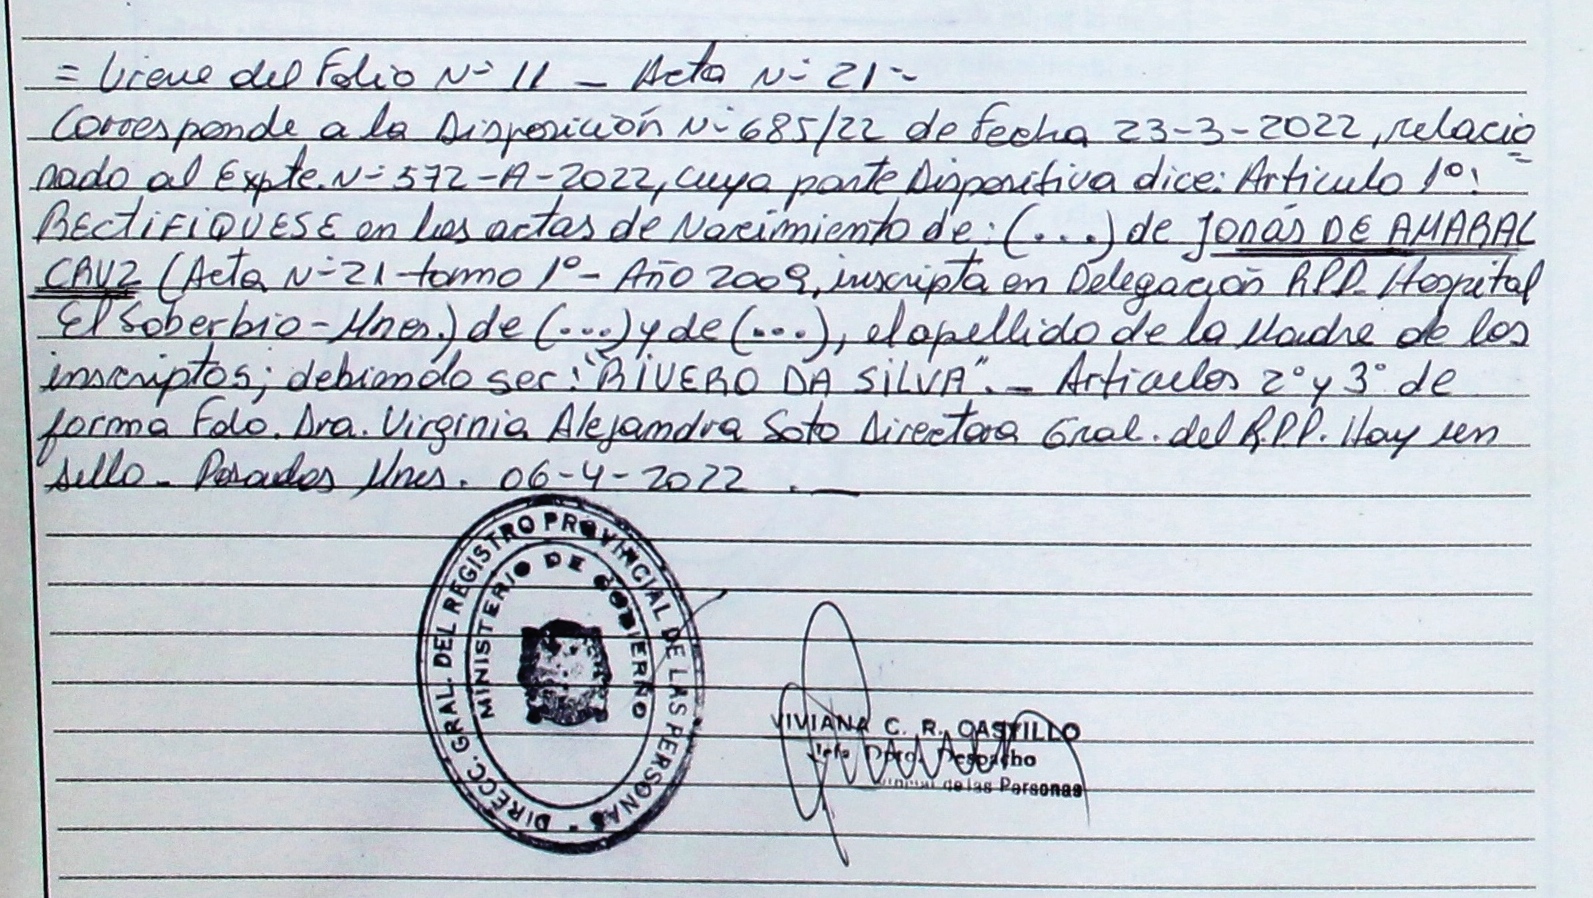 = Viene del Folio Nº 11 – Acta Nº 21 –
Corresponde a la Disposición Nº 685/22 de fecha 23-3-2022, relacio
nado al Expte. Nº 572-A-2022, cuya parte Dispositiva dice: Articulo 1º:
RECTIFIQUESE en las actas de Nacimiento de: (...) de JONÁS DE AMARAL
CRUZ (Acta Nº 21 - tomo 1º - Año 2009, inscripta en Delegación R.P.P. Hospital
El Soberbio - Mnes.) de (...) y de (...), el apellido de la Madre de los
inscriptos; debiendo ser: "RIVERO DA SILVA". – Articulos 2º y 3º de
forma Fdo. Dra. Virginia Alejandra Soto Directora Gral. del R.P.P. Hay un
sello – Posadas Mnes. 06-4-2022 . —
DIRECC. GRAL. DEL REGISTRO PROVINCIAL DE LAS PERSONAS
MINISTERIO DE GOBIERNO
VIVIANA C. R. CASTILLO
Jefe Dpto. Despacho
de las Personas